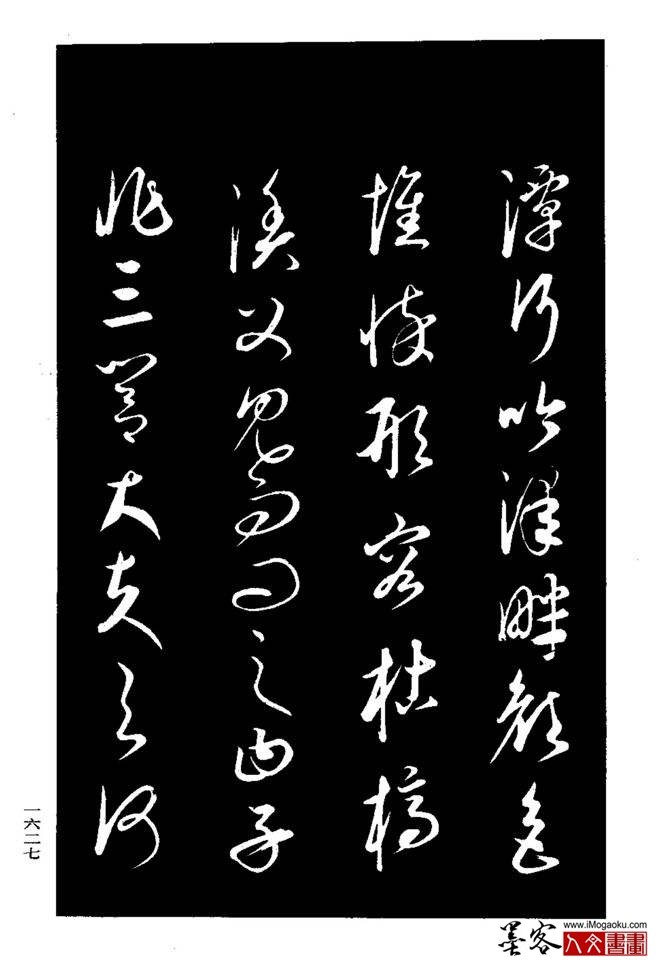 潭行吟澤畔顏色
憔悴形容枯槁
漁父見而問之曰子
非三閭大夫與何
一六二七
墨客
www.iMogaoku.com
人文書畫